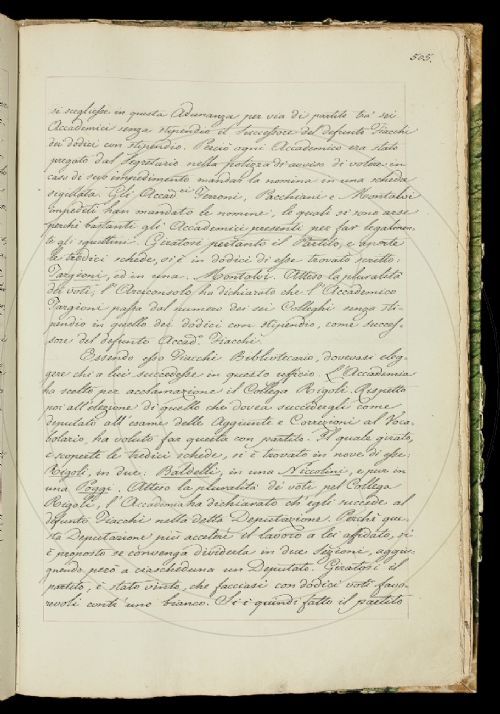 505.
si scegliesse in questa Adunanza per via di partito tra' sei
Accademici senza stipendio il Successore del defunto Fiacchi
dei dodici con stipendio. Perciò ogni Accademico era stato
pregato dal Segretario nella polizza di avviso di volere in
caso di suo impedimento mandar la nomina in una scheda
sigillata. Gli Accad.ci Ferroni, Pacchiani e Montalvi
impediti han mandato le nomine, le quali si sono arse
perchè bastanti gli Accademici presenti per far legalmen-
te gli squittini. Giratosi pertanto il Partito, e aperte
le tredici schede, si è in dodici di esse trovato scritto:
Targioni, ed in una: Montalvi. Atteso la pluralità
dei voti, l'Arciconsolo ha dichiarato che l'Accademico
Targioni passa dal numero dei sei Colleghi senza sti-
pendio in quello dei dodici con stipendio, come succes-
sore del defunto Accad.co Fiacchi.
Essendo esso Fiacchi Bibliotecario, dovevasi eleg-
gere chi a lui succedesse in questo uffizio. L'Accademia
ha scelto per acclamazione il Collega Rigoli. Rispetto
poi all'elezione di quello che dovea succedergli come
deputato all'esame delle Aggiunte e Correzioni al Voca-
bolario, ha voluto far questa con partito. Il quale girato,
e scoperte le tredici schede, si è trovato in nove di esse:
Rigoli, in due: Baldelli, in una Niccolini, e pur in
una Poggi. Atteso la pluralità de' voti pel Collega
Rigoli, l'Accademia ha dichiarato ch'egli succede al
defunto Fiacchi nella detta Deputazione. Perchè que-
sta Deputazione più acceleri il lavoro a lei affidato, si
è proposto se convenga dividerla in due sezioni, aggiu-
gnendo però a ciascheduna un Deputato. Giratosi il
partito, è stato vinto, che facciasi con dodici voti favo-
revoli contr'uno bianco. Si è quindi fatto il partito